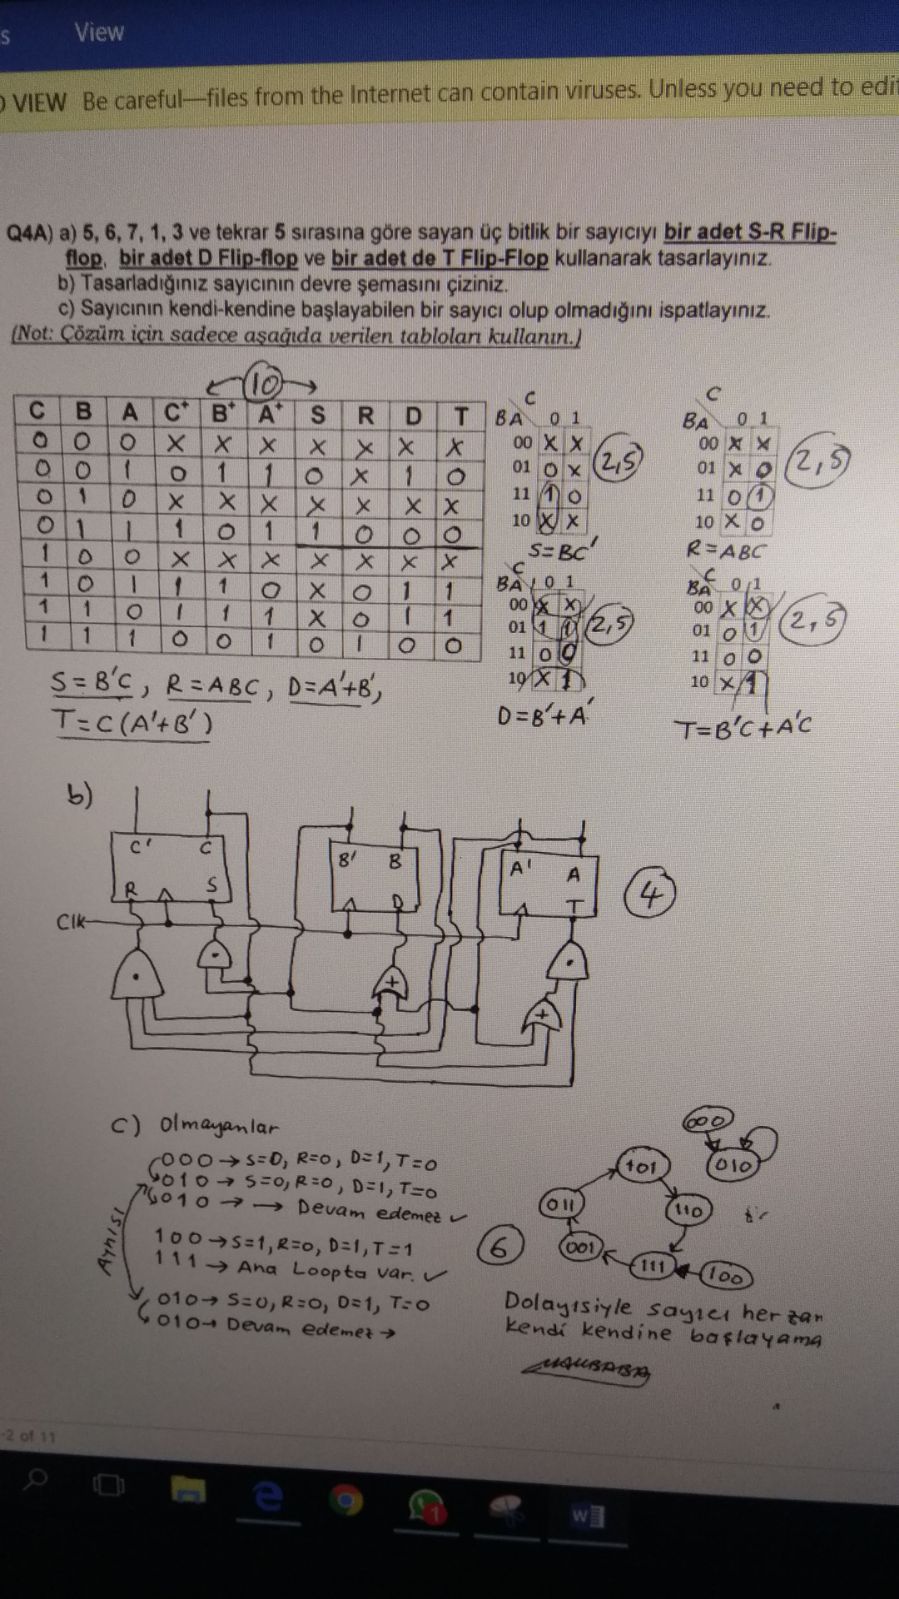 s View
VIEW Be careful—files from the Internet can contain viruses. Unless you need to edit
Q4A) a) 5, 6, 7, 1, 3 ve tekrar 5 sırasına göre sayan üç bitlik bir sayıcıyı bir adet S-R Flip-
flop, bir adet D Flip-flop ve bir adet de T Flip-Flop kullanarak tasarlayınız.
b) Tasarladığınız sayıcının devre şemasını çiziniz.
c) Sayıcının kendi-kendine başlayabilen bir sayıcı olup olmadığını ispatlayınız.
(Not: Çözüm için sadece aşağıda verilen tabloları kullanın.)
10
C B A C+ B+ A+ S R D T
0 0 0 X X X X X X X
0 0 1 0 1 1 0 X 1 0
0 1 0 X X X X X X X
0 1 1 1 0 1 1 0 0 0
1 0 0 X X X X X X X
1 0 1 1 1 0 X 0 1 1
1 1 0 1 1 1 X 0 1 1
1 1 1 0 0 1 0 1 0 0
C
BA 0 1
00 X X
01 0 X
11 1 0
10 X X
2,5
S=BC'
C
BA 0 1
00 X X
01 X 0
11 0 1
10 X 0
2,5
R=ABC
C
BA 0 1
00 X X
01 1 1
11 0 0
10 X 1
2,5
D=B'+A'
C
BA 0 1
00 X X
01 0 1
11 0 0
10 X 1
2,5
T=B'C+A'C
S=B'C, R=ABC, D=A'+B',
T=C(A'+B')
b)
C' C
R S
B' B
D
A' A
T
Clk
4
c) Olmayanlar
000→S=0, R=0, D=1, T=0
010→S=0, R=0, D=1, T=0
010→→ Devam edemez ✓
100→S=1, R=0, D=1, T=1
111→ Ana Loopta var. ✓
Aynısı
010→S=0, R=0, D=1, T=0
010→ Devam edemez→
6
000
010
101
110
111
100
001
011
Dolayısiyle sayıcı her zam
kendi kendine başlayama
-2 of 11
1
W